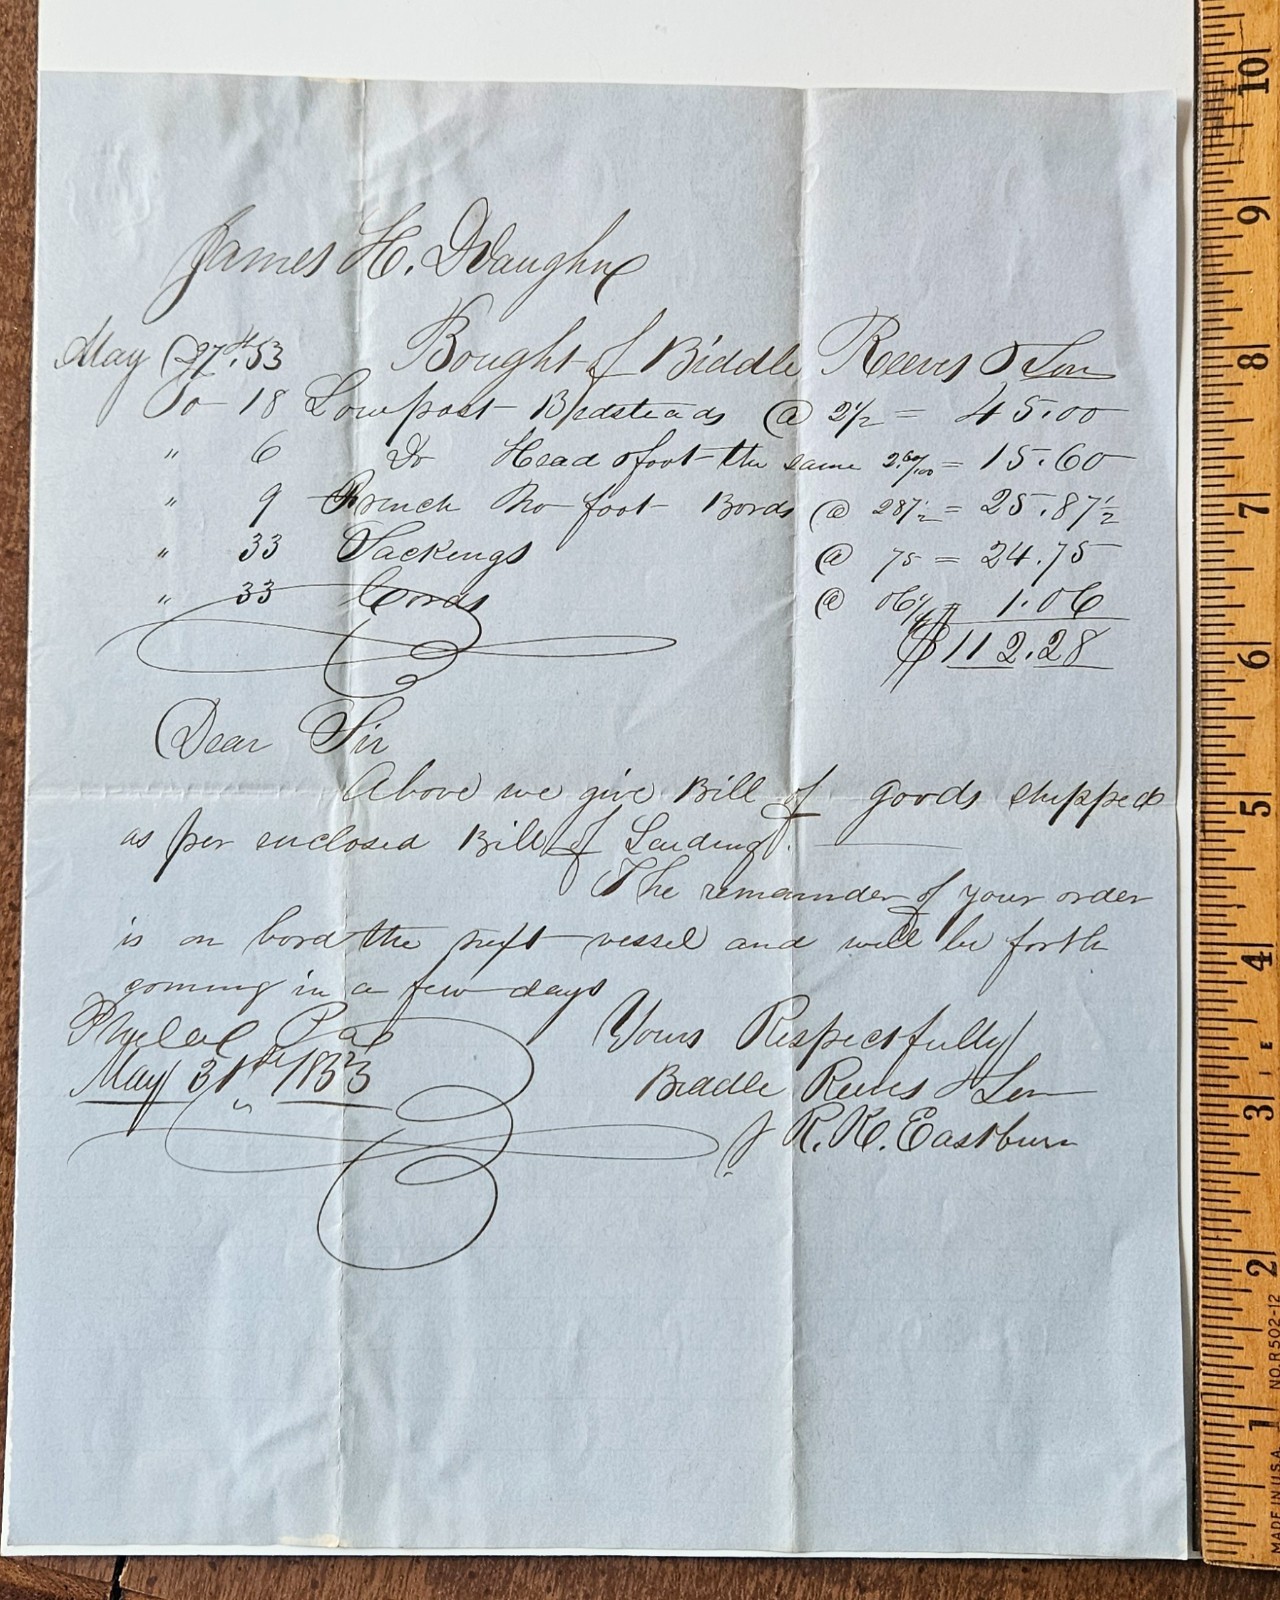 James H. Vaughn
May 27th 53 Bought of Biddle Reeves & Son
To 18 Lowpost Bedsteads @ 2 1/2 = 45.00
" 6 Do Head & foot the same 2.60/00 = 15.60
" 9 French No foot Bords @ 287 1/2 = 25.87 1/2
" 33 Sackings @ 75 = 24.75
" 33 Cords @ 06 1/4 = 1.06
$112.28
Dear Sir
Above we give Bill of goods shipped
as per enclosed Bill of Landing.
The remainder of your order
is on bord the next vessel and will be forth
coming in a few days
Philad Pa Yours Respectfully
May 31th 1853 Biddle Reeves & Son
R. K. Eastburn
10
9
8
7
6
5
4
3
2
1
E
NO.R502-12
MADE IN U.S.A.